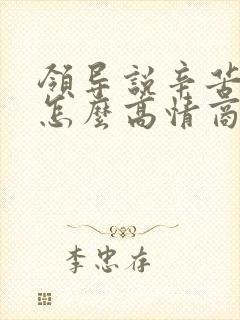 領导説辛苦
怎麽高情商
李忠存